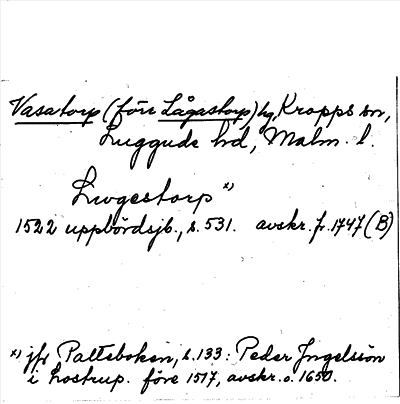 Vasatorp (förr Lågastorp) hg, Kropps sn,
Luggude hd, Malm. l.
Liwgestorp x)
1522 uppbördsjb., s. 531. avskr. fr. 1747 (B)
x) jfr Palteboken, s. 133: Peder Jngelssön
i Lostrup. före 1517, avskr. o. 1650.